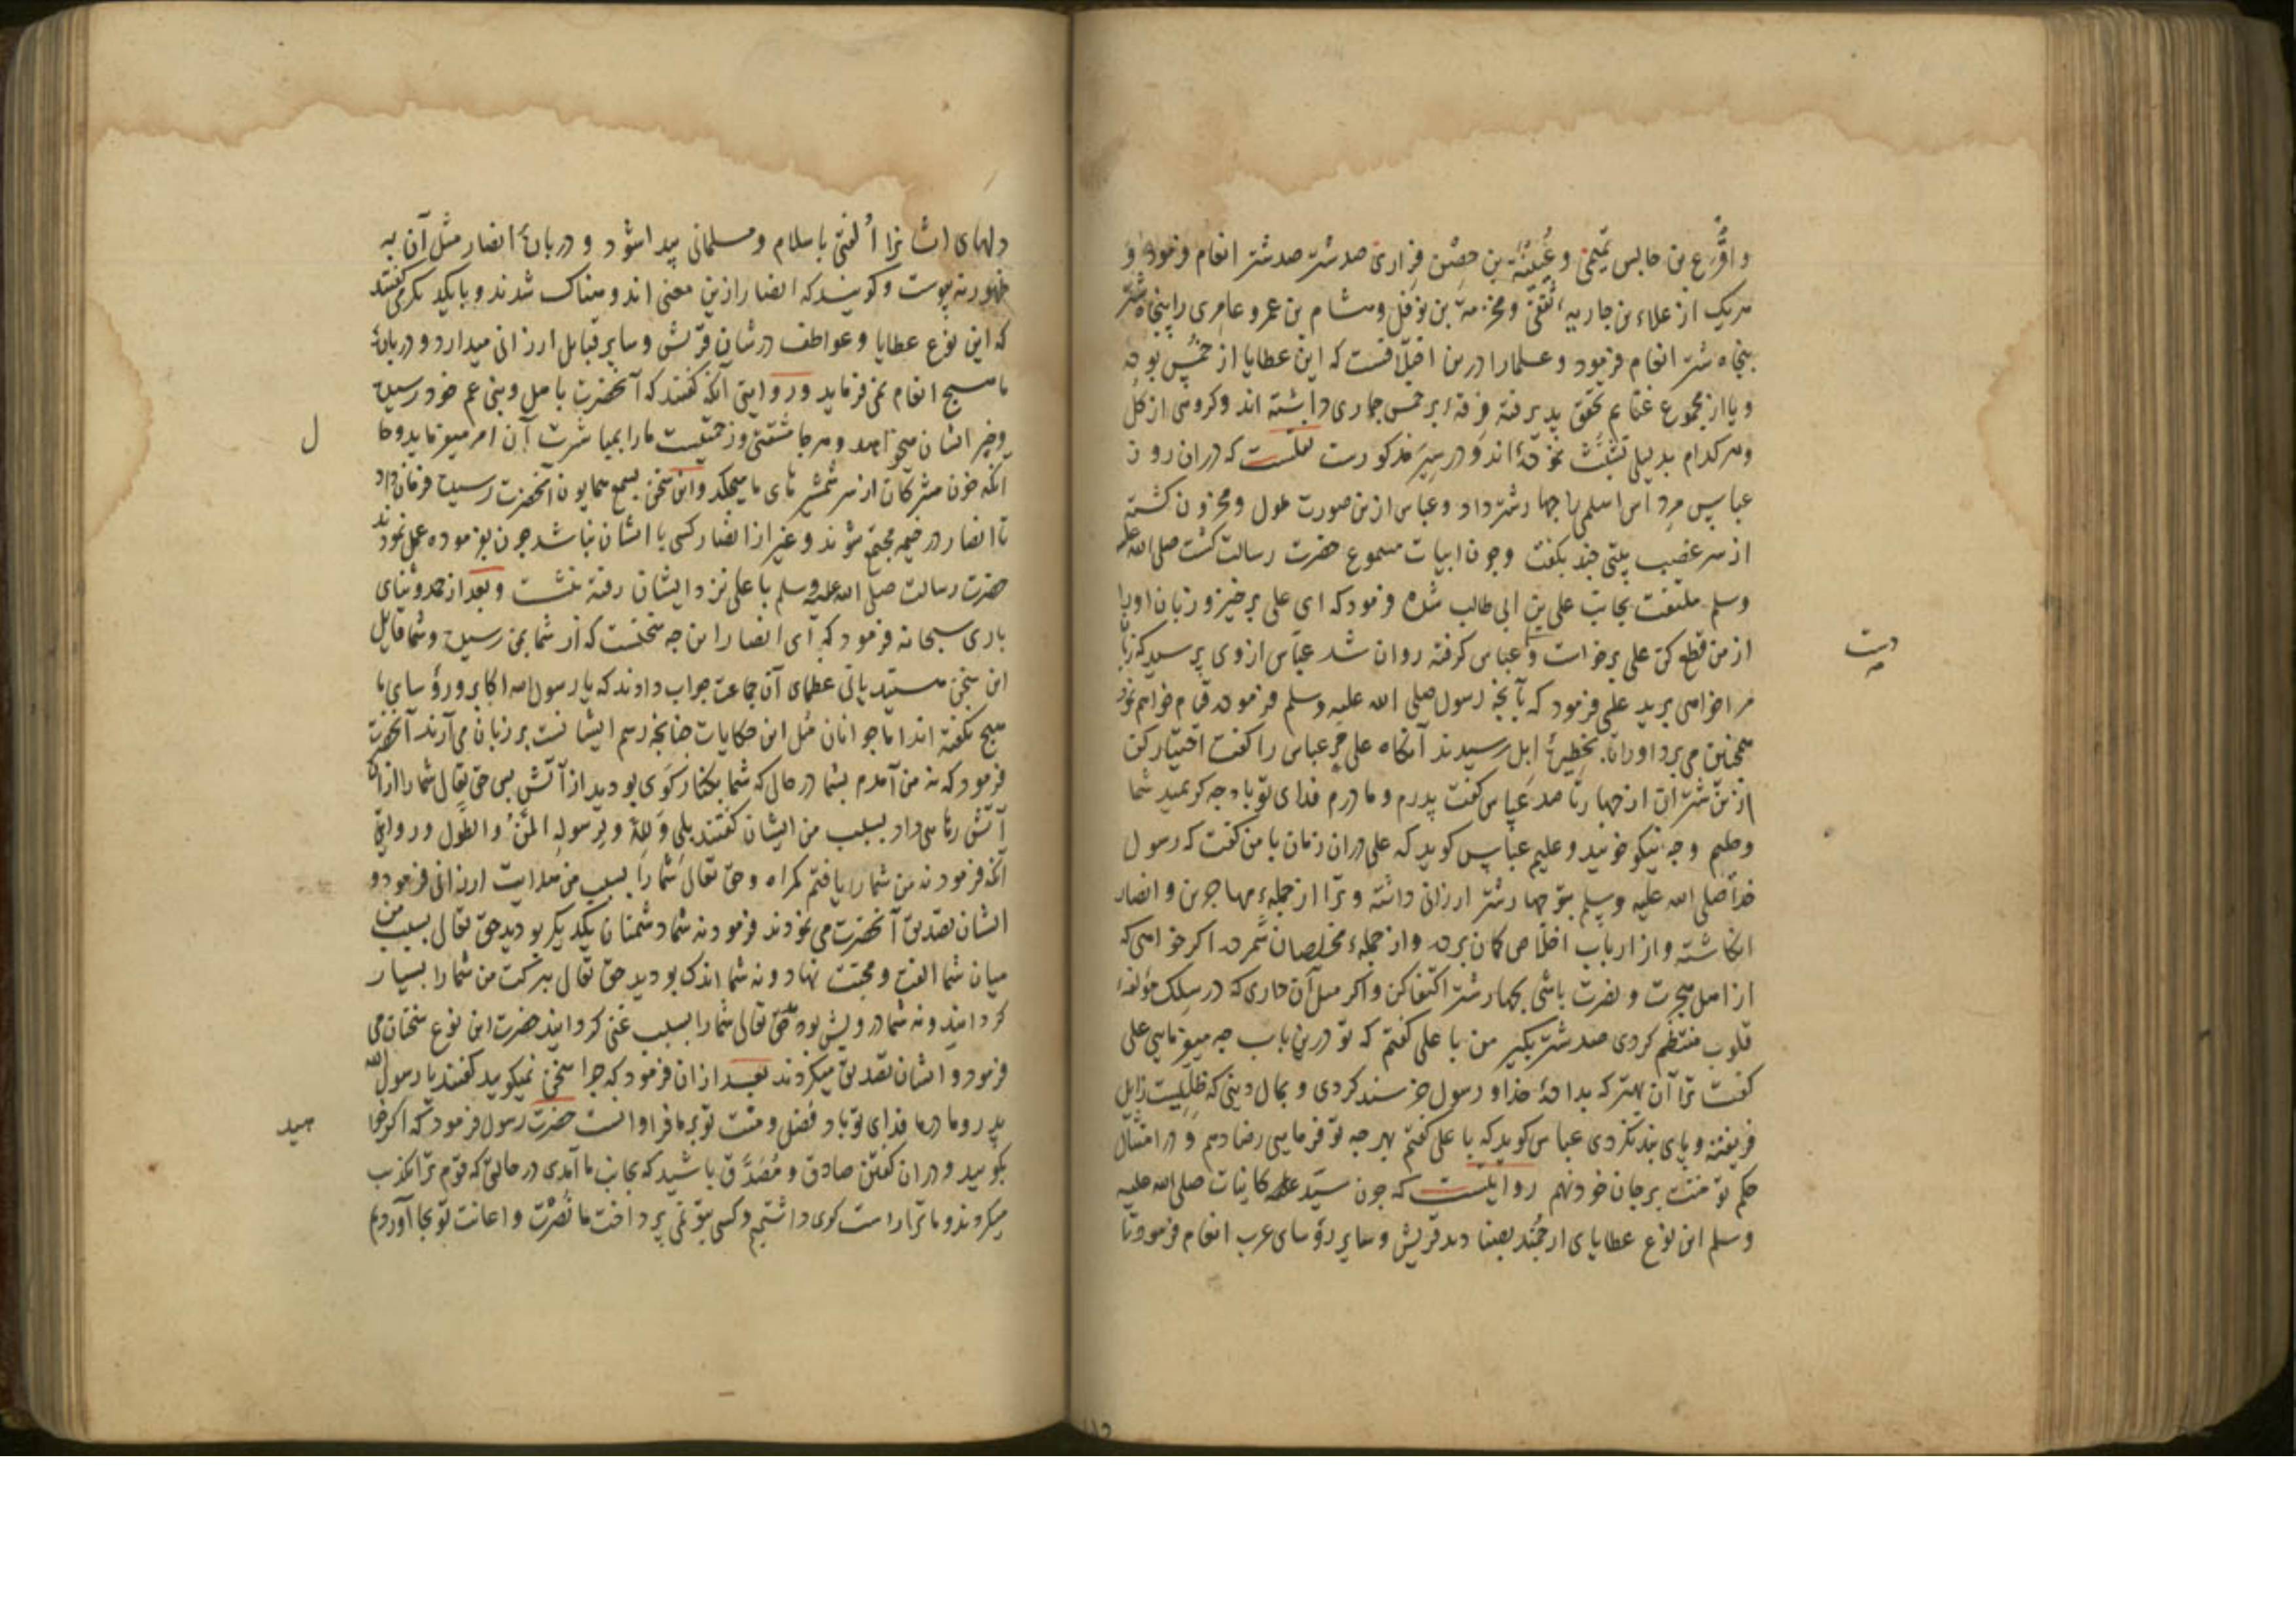 و اقرع بن حابس تمیمی و عیینة بن حصن فزاری صد شتر صد شتر انعام فرمود و
هریک از علاء بن جاریه ثقفی و مخرمة بن نوفل و هشام بن عمرو عامری را پنجاه شتر
پنجاه شتر انعام فرمود و علما را درین اختلافست که این عطایا از خمس بوده
و یا از مجموع غنایم تحقق پذیرفته فرقهٔ بر خمس جاری داشته اند و کروهی از کل
و هر کدام بدلیلی تشبث نموده اند و در سیر مذکورست که دران روز
عباس مرداس اسلمی را چهار شتر داد و عباس ازین صورت ملول و محزون کشته
از سر غضب بیتی چند بکفت و چون ابیات مسموع حضرت رسالت کشت صلی الله علیه
وسلم ملتفت بجانب علی بن ابی طالب شده فرمود که ای علی برخیز و زبان او را
از من قطع کن علی برخاست و عباس کرفته روان شد عباس از وی پرسید که زبان
دست
مرا خواهی برید علی فرمود که بآنچه رسول صلی الله علیه وسلم فرموده قیام خواهم نمود
همچنین می برد او را تا بحظیرهٔ ابل رسیدند آنکاه علی مر عباس را کفت اختیار کن
ازین شتران از چهار تا صد عباس کفت پدرم و مادرم فدای تو باد چه کریمید شما
و حلیم و چه نیکو خوئید و علیم عباس کوید که علی دران زمان با من کفت که رسول
خدا صلی الله علیه وسلم بتو چهار شتر ارزانی داشته و ترا از جملهٔ مهاجرین و انصار
انکاشته و از ارباب اخلاص کمان برده و از جملهٔ مخلصان شمرده اکر خواهی که
از اهل هجرت و نصرت باشی بچهار شتر اکتفا کن و اکر میل آن داری که در سلک مؤلفهٔ
قلوب منتظم کردی صد شتر بکیر من با علی کفتم که تو درین باب چه میفرمایی علی
کفت ترا آن بهتر که بدادهٔ خدا و رسول خرسند کردی و بمال دنیی که ظلیست زایل
فریفته و پای بند نکردی عباس کوید که با علی کفتم بهر چه تو فرمایی رضا دهم و در امتثال
حکم تو منت بر جان خود نهم روایتست که چون سید کاینات صلی الله علیه
وسلم این نوع عطایای ارجمند بصنادید قریش و سایر رؤسای عرب انعام فرمود تا
دلهای ایشانرا الفتی باسلام و مسلمانی پیدا شود و دربارهٔ انصار مثل آن به
ظهور نه پیوست و کویند که انصار ازین معنی اندوهناک شدند و با یکدیکر می کفتند
که این نوع عطایا و عواطف در شان قریش و سایر قبایل ارزانی میدارد و دربارهٔ
ما هیچ انعام نمی فرماید و روایتی آنکه کفتند که آنحضرت باهل و بنی عم خود رسیده
و خیر ایشان میخواهد و هر جا مشقتی و زحمتیست ما را بمباشرت آن امر میفرماید و حال
ل
آنکه خون مشرکان از سر شمشیرهای ما میچکد و این سخن بسمع همایون آنحضرت رسیده فرمان داد
تا انصار در خیمه مجتمع شوند و غیر از انصار کسی با ایشان نباشد چون بفرموده عمل نمودند
حضرت رسالت صلی الله علیه وسلم با علی نزد ایشان رفته بنشست و بعد از حمد و ثنای
باری سبحانه فرمود که ای انصار این چه سخنست که از شما بمن رسیده و شما قایل
این سخن هستید یا نی عظمای آن جماعت جواب دادند که یا رسول الله اکابر و رؤسای ما
هیچ نکفته اند اما جوانان مثل این حکایات چنانچه رسم ایشانست بر زبان می آرند آنحضرت
فرمود که نه من آمدم بشما در حالی که شما بکنار کوی بودید از آتش پس حق تعالی شما را ازان
آتش رهایی داد بسبب من ایشان کفتند بلی ولله و لرسوله المن والطول و روایتی
آنکه فرمود نه من شما را یافتم کمراه و حق تعالی شما را بسبب من هدایت ارزانی فرمود و
ایشان تصدیق آنحضرت می نمودند فرمود نه شما دشمنان یکدیکر بودید حق تعالی بسبب من
میان شما الفت و محبت نهاد و نه شما اندک بودید حق تعالی ببرکت من شما را بسیار
کردانید و نه شما درویش بوده حق تعالی شما را بسبب غنی کردانید حضرت این نوع سخنان می
فرمود و ایشان تصدیق میکردند بعد ازان فرمود که چرا سخن نمیکویید کفتند یا رسول الله
پدر و مادر ما فدای تو باد و فضل و منت تو بر ما فراوانست حضرت رسول فرمود که اکر خوا
هید
بکویید و دران کفتن صادق و مصدق باشید که بجانب ما آمدی در حالتی که قوم ترا تکذیب
میکردند و ما ترا راست کوی داشتیم و کسی بتو نمی پرداخت ما نصرت و اعانت تو بجا آوردیم